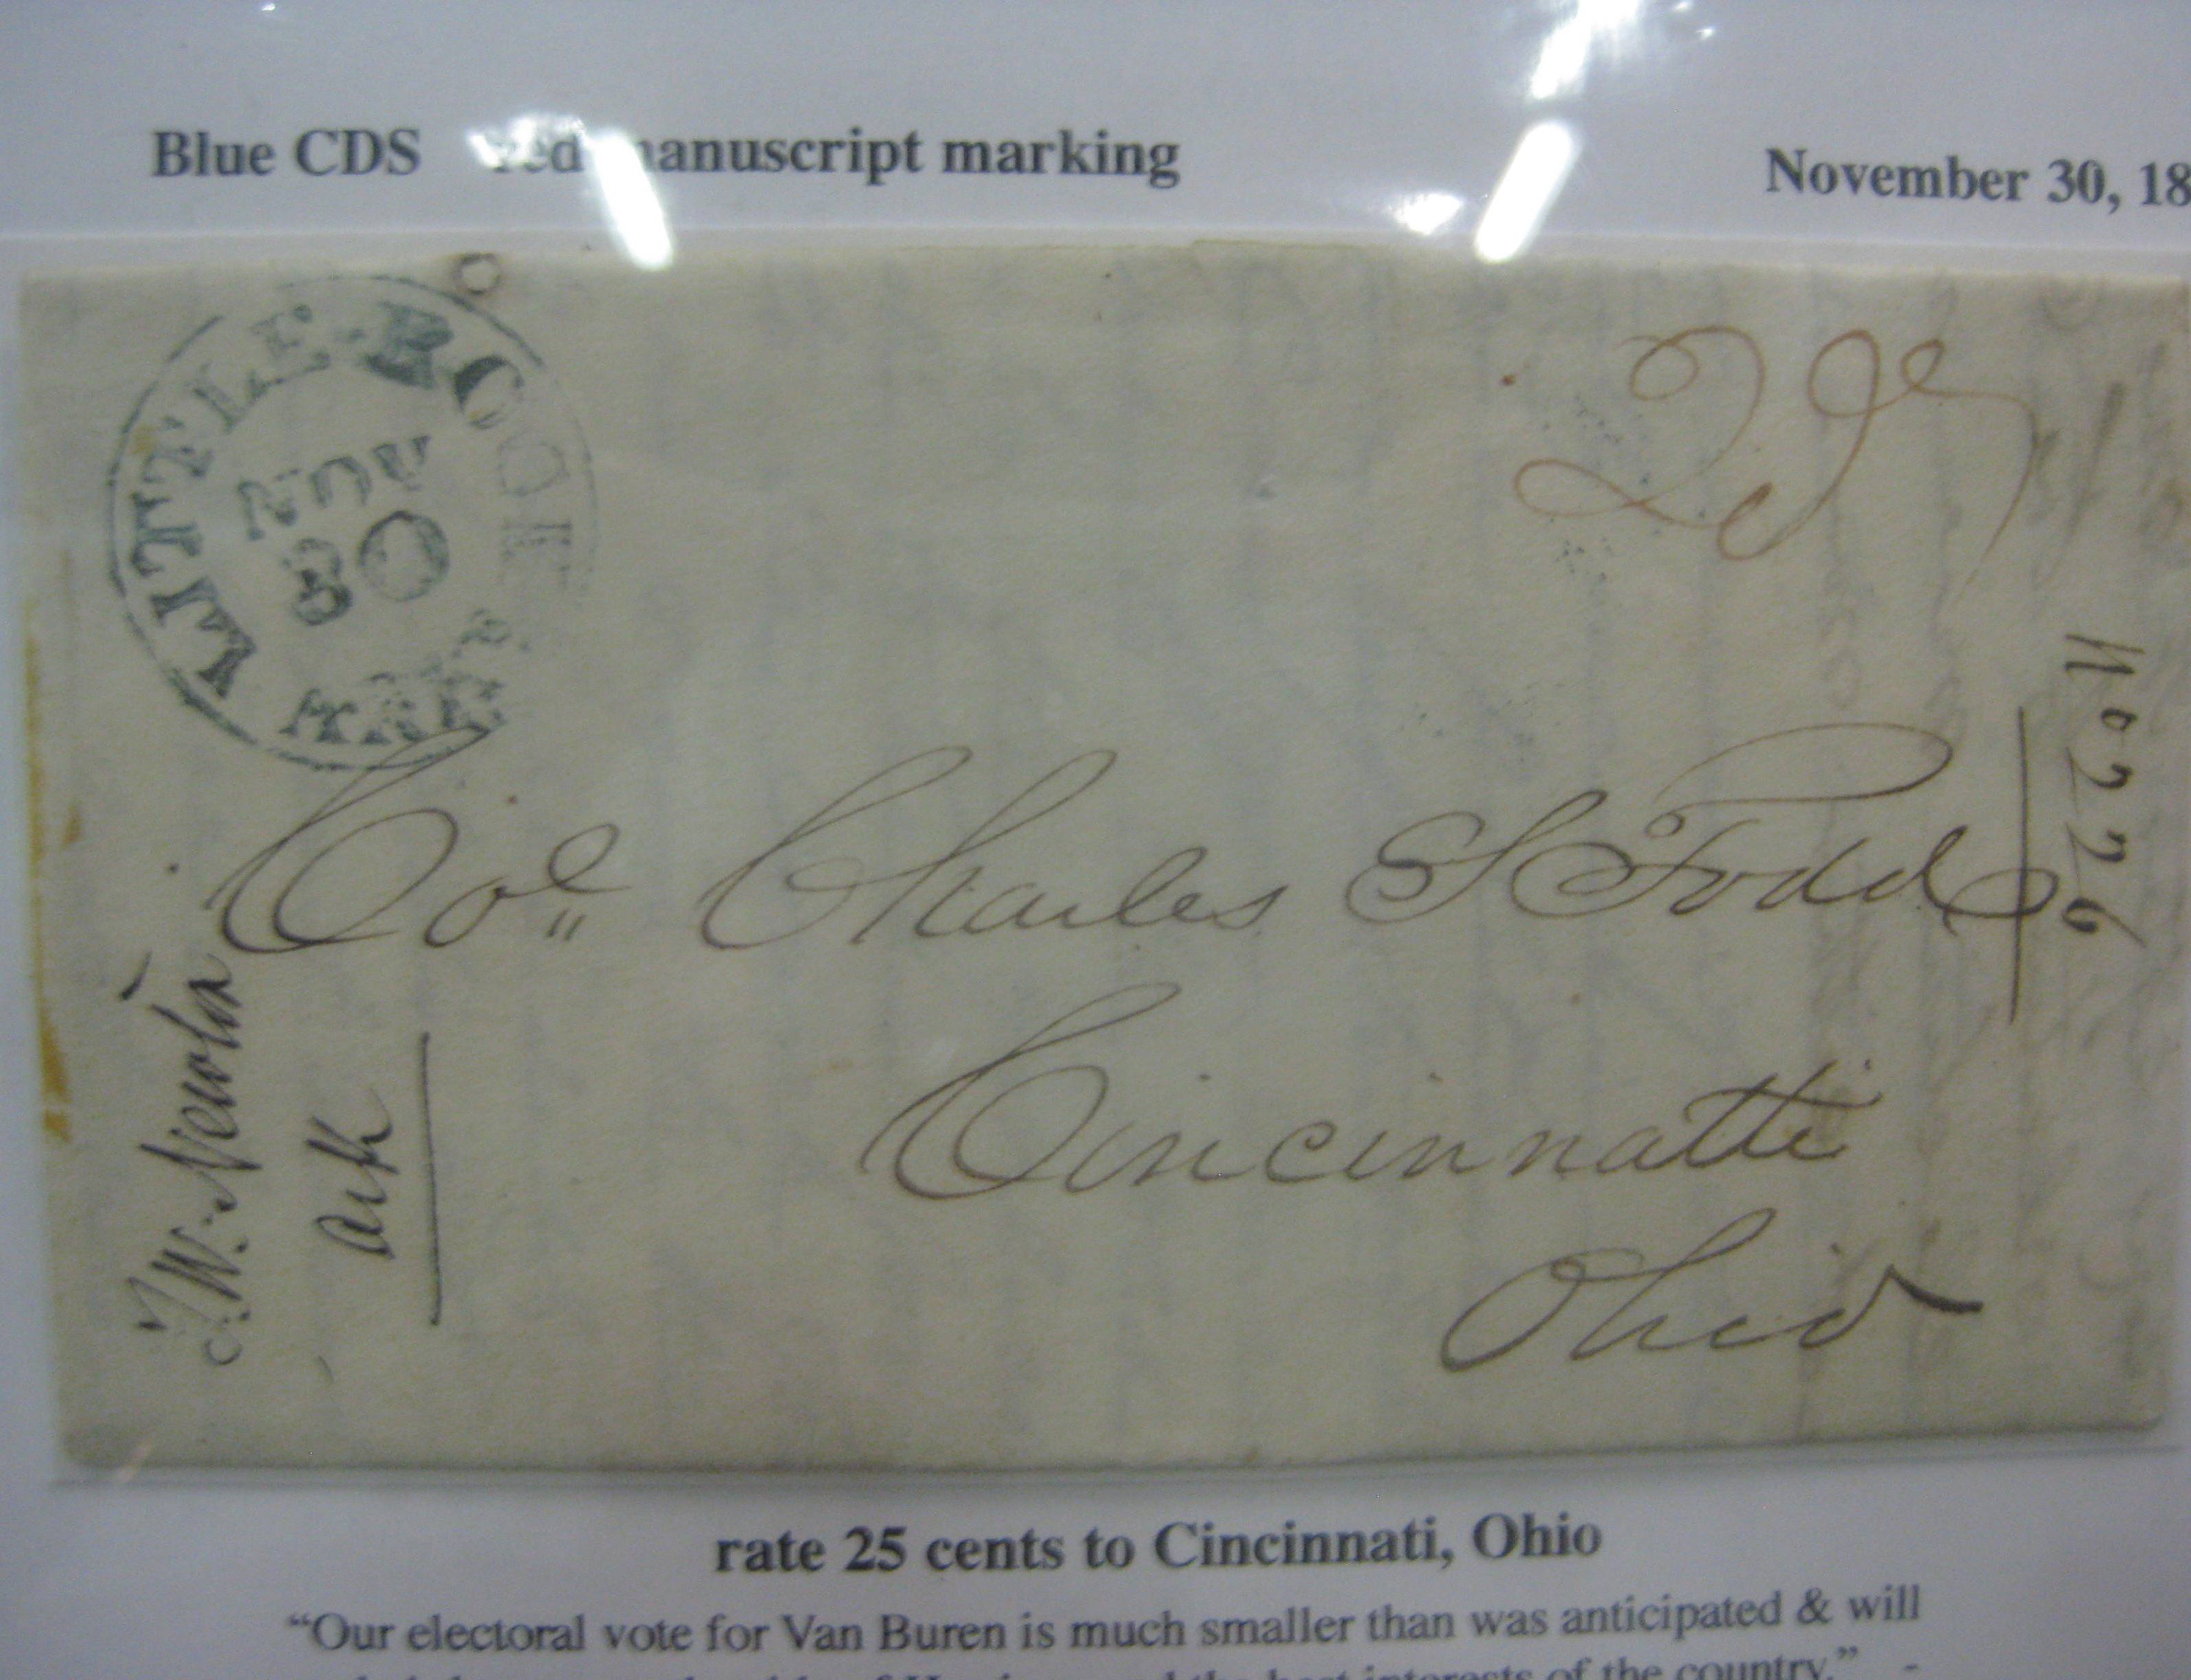 Blue CDS red manuscript marking
November 30, 18
LITTLE-ROCK
ARK
NOV
30
25
No 226
Col Charles S Todd
Cincinnatti
Ohio
T. W. Newton
Ark
rate 25 cents to Cincinnati, Ohio
“Our electoral vote for Van Buren is much smaller than was anticipated & will
the best interests of the country.” -